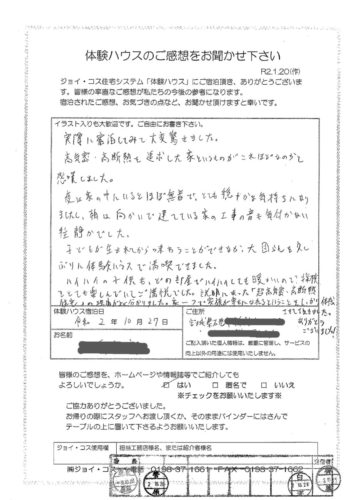 体験ハウスのご感想をお聞かせ下さい
R2.1.20(作)
ジョイ・コス住宅システム「体験ハウス」にご宿泊頂き、ありがとうございま
す。皆様の率直なご感想が私たちの今後の参考になります。
宿泊されたご感想、お気づきの点など、お聞かせ頂けますと幸いです。
イラスト入りも大歓迎です。ご自由にお書き下さい。
実際に宿泊してみて大変驚きました。
高気密・高断熱を追求した家というものがこれほどなのかと
感嘆しました。
夜は家の中にいるとほぼ無音で、とても穏やかな気持ちになり
ましたし、朝は向かいで建てている家の工事の音も気付かない
位静かでした。
子どもが生まれてから味わうことができな
ぶりに体験ハウスで満喫できました。
ハイハイの子供も、どの部屋でハイハイしても暖かいので
とても楽しんでいてご満悦でした。
体験ハウス宿泊日
令和 2 年 10 月 27 日
ご住所
お名前
ありがとう
ございました
ご記入頂いた個人情報は、厳重に管理し、サービスの
向上以外の用途には使用いたしません。
皆様のご感想を、ホームページや情報誌等でご紹介しても
よろしいでしょうか。 □ はい □ 匿名で □ いいえ
※チェックをお願いいたします※
ご協力ありがとうございました。
お帰りの際にスタッフへお渡し頂くか、そのままバインダーにはさんで
テーブルの上に置いて下さるようお願いいたします。
ジョイ・コス使用欄 担当工務店様名、または紹介者様名
㈱ジョイ・コス 電話 0198-37-1661 FAX 0198-37-1662